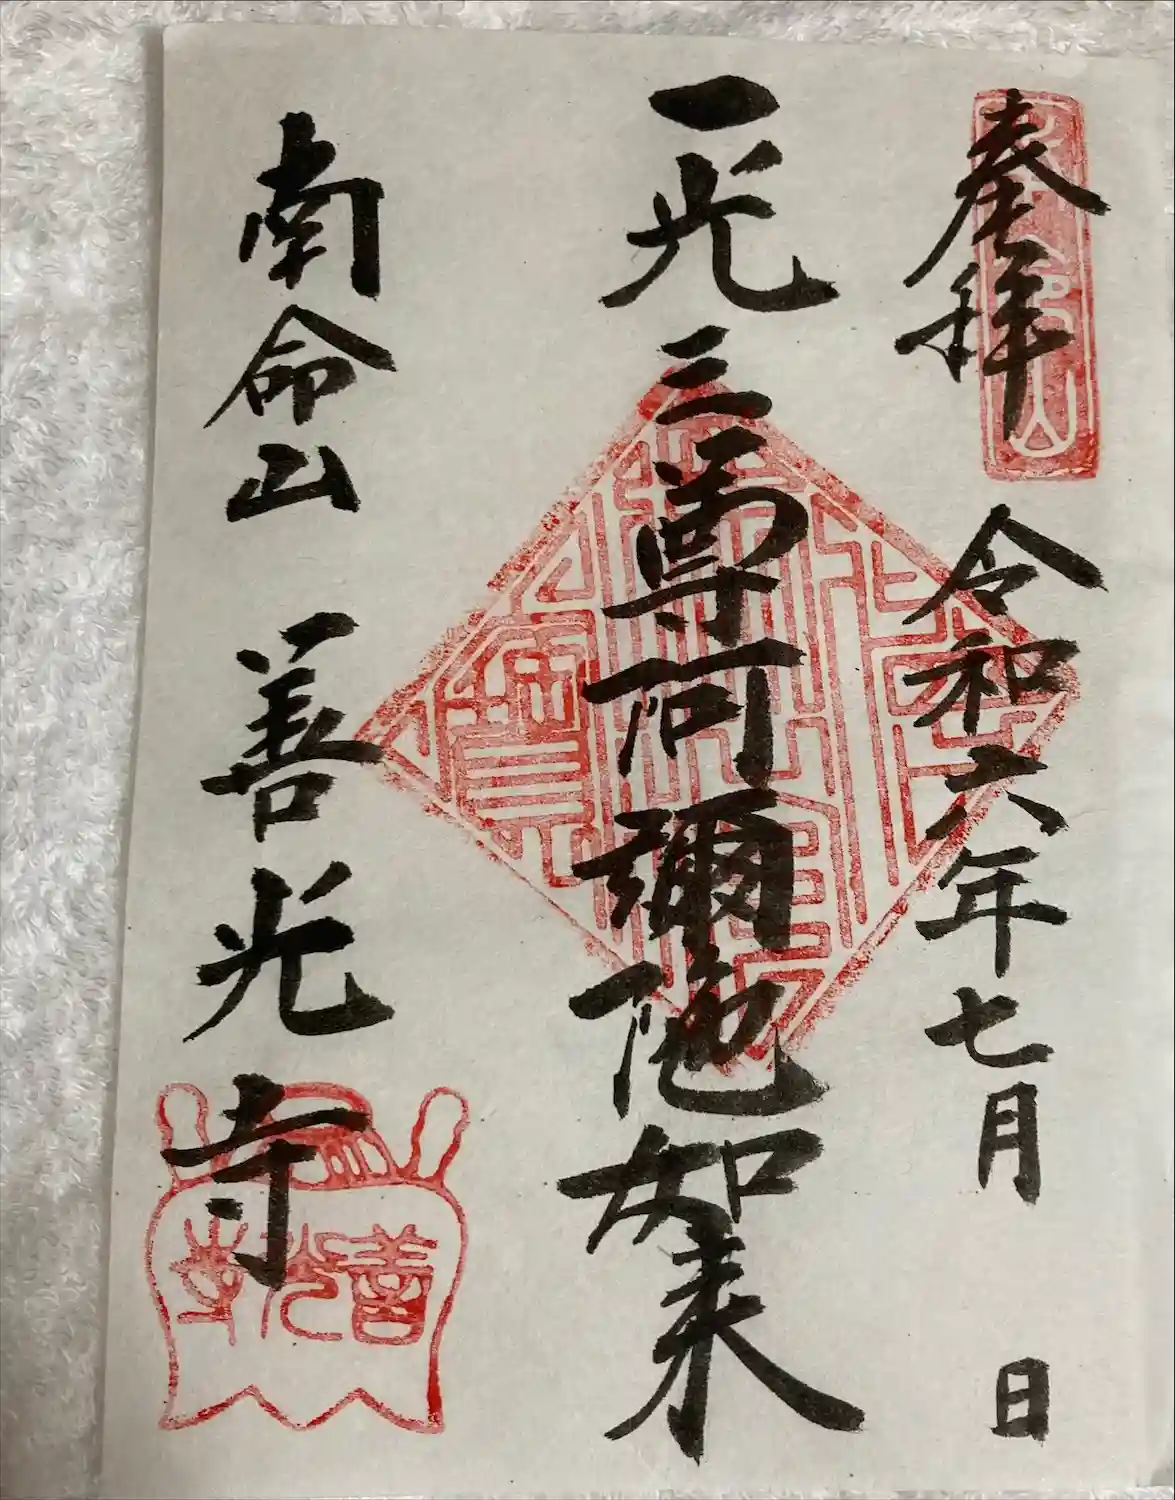 奉拝
令和六年七月　日
一光三尊阿彌陀如来
南命山　善光寺
善光寺